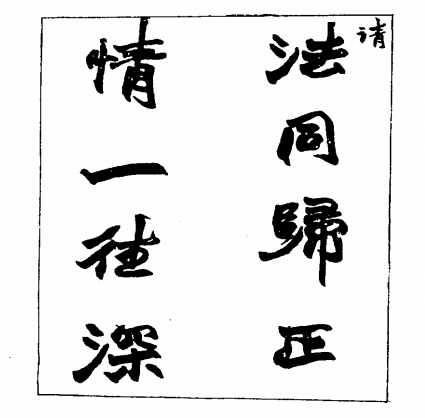 请
法同歸正
情一往深